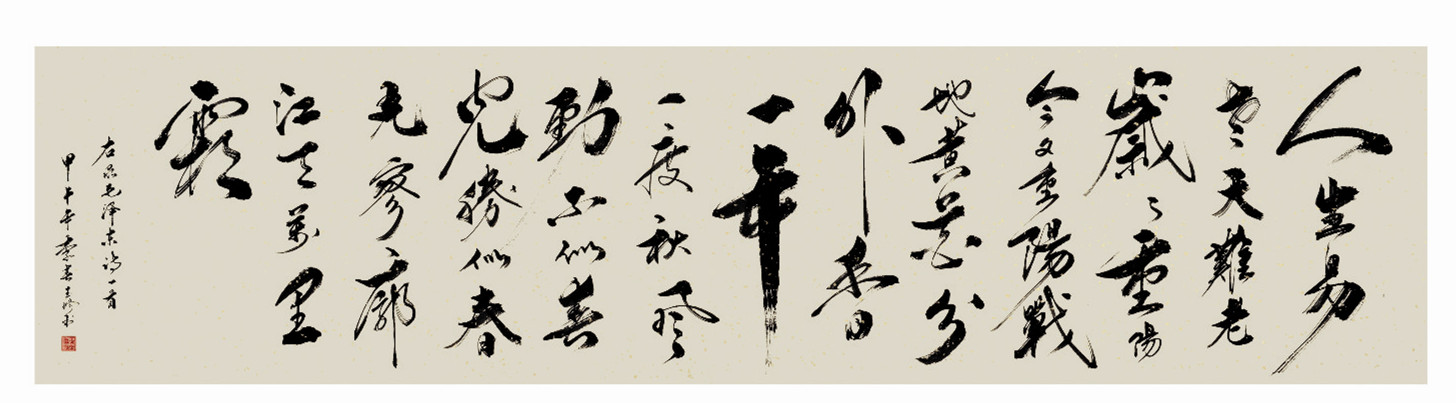 人生易
老天難老
歲々重陽
今又重陽戰
地黄花分
外香
一年
一度秋風
勁不似春
光勝似春
光寥廓
江天萬里
霜
右录毛泽东诗一首
甲午年